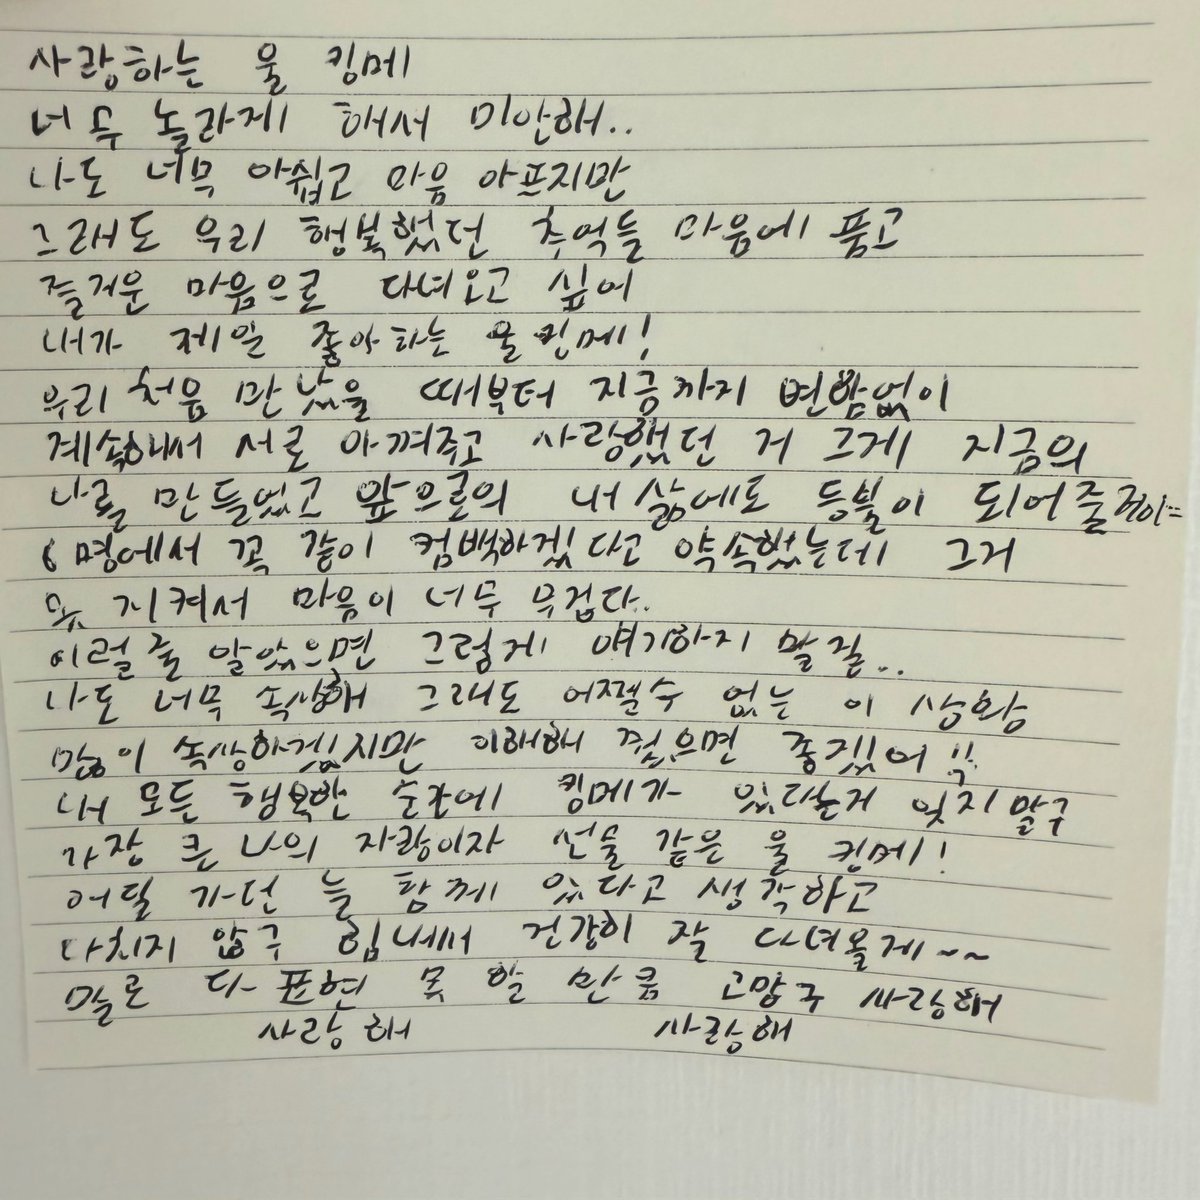 사랑하는 울 킹메
너무 놀라게 해서 미안해..
나도 너무 아쉽고 마음 아프지만
그래도 우리 행복했던 추억들 마음에 품고
즐거운 마음으로 다녀오고 싶어
내가 제일 좋아하는 울 킹메!
우리 처음 만났을 때부터 지금까지 변함없이
계속해서 서로 아껴주고 사랑했던 거 그게 지금의
나를 만들었고 앞으로의 내 삶에도 등불이 되어줄거야
6명에서 꼭 같이 컴백하겠다고 약속했는데 그거
못 지켜서 마음이 너무 무겁다..
이럴 줄 알았으면 그렇게 얘기하지 말걸..
나도 너무 속상해 그래도 어쩔수 없는 이 상황
많이 속상하겠지만 이해해 줬으면 좋겠어
내 모든 행복한 순간에 킹메가 있다는거 잊지말구
가장 큰 나의 자랑이자 선물 같은 울 킹메!
어딜 가던 늘 함께 있다고 생각하고
다치지 않구 힘내서 건강히 잘 다녀올게~~
말로 다 표현 못 할 만큼 고맙구 사랑해
사랑해 사랑해